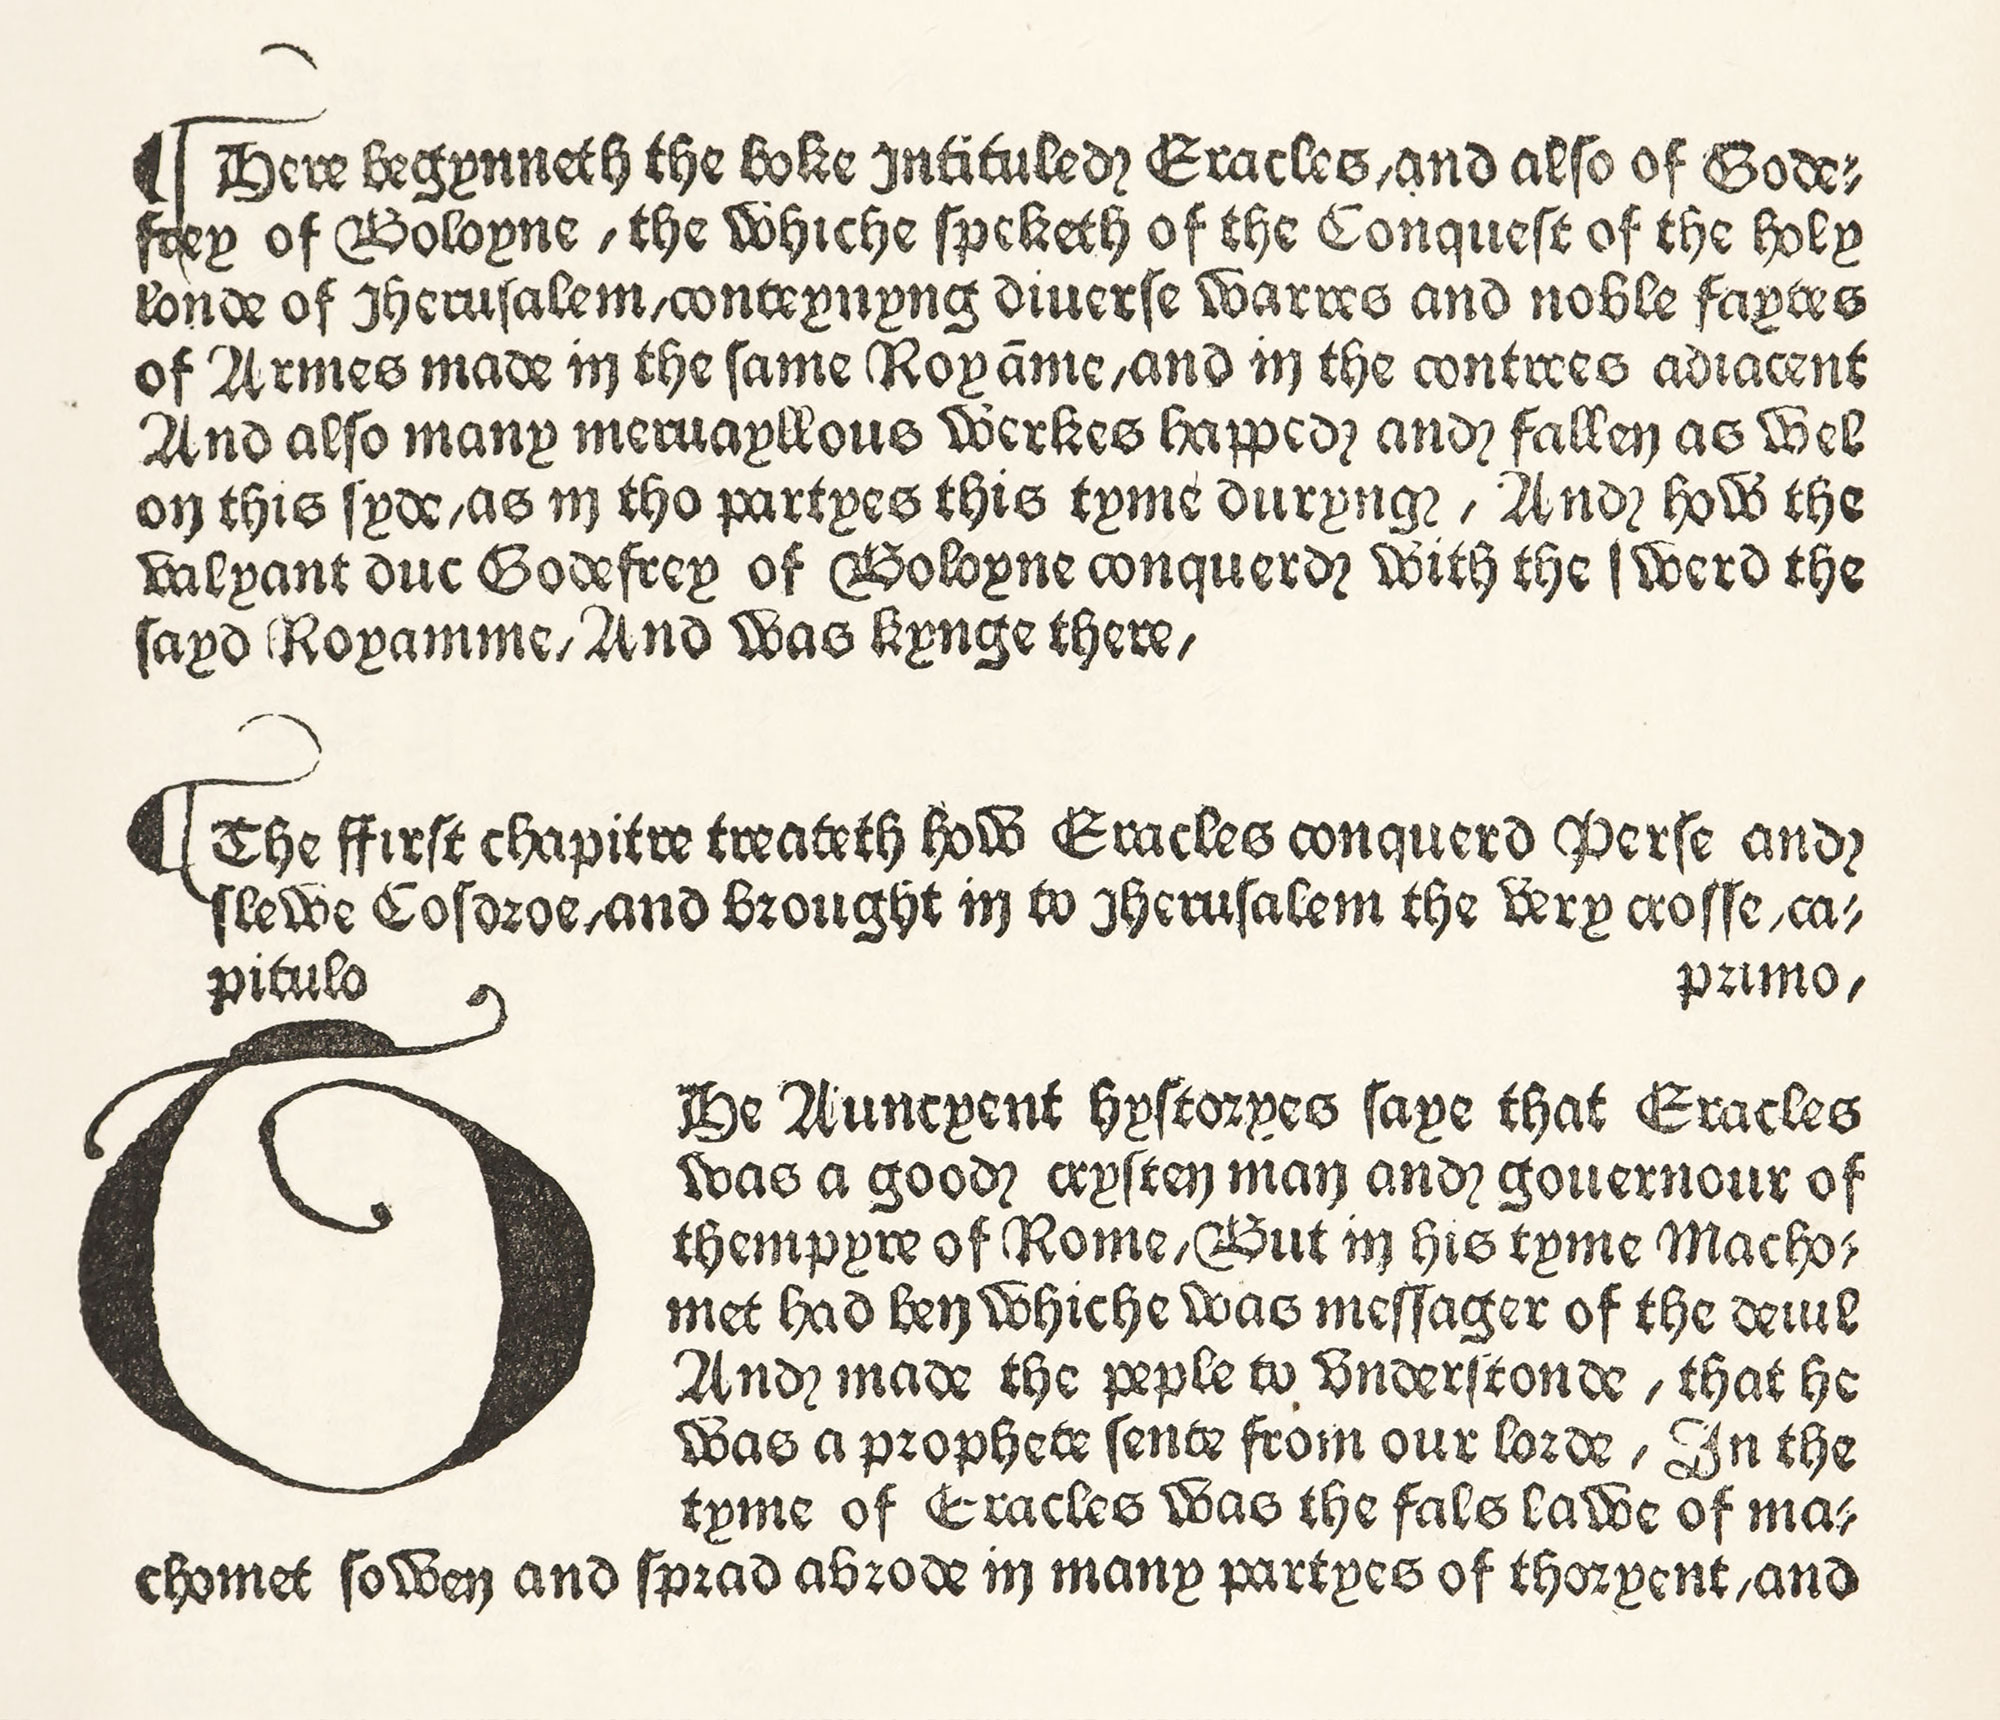 ¶ Here begynneth the boke Intituled Eracles, and also of Gode-
frey of Boloyne, the whiche speketh of the Conquest of the holy
londe of Jherusalem, conteynyng diuerse warres and noble faytes
of Armes made in the same Royāme, and in the contrees adiacent
And also many meruayllous werkes happed and fallen as wel
on this syde, as in tho partyes this tyme duryng, And how the
valyant duc Godefrey of Boloyne conquerd with the swerd the
sayd Royamme, And was kynge there,
¶ The ffirst chapitre treateth how Eracles conquerd Perse and
slewe Cosdroe, and brought in to Jherusalem the very crosse, ca-
pitulo primo,
THe Auncyent hystoryes saye that Eracles
was a good crysten man and gouernour of
thempyre of Rome, But in his tyme Macho-
met had ben whiche was messager of the deuil
And made the peple to vnderstonde, that he
was a prophete sente from our lorde, In the
tyme of Eracles was the fals lawe of ma-
chomet sowen and sprad abrode in many partyes of thoryent, and